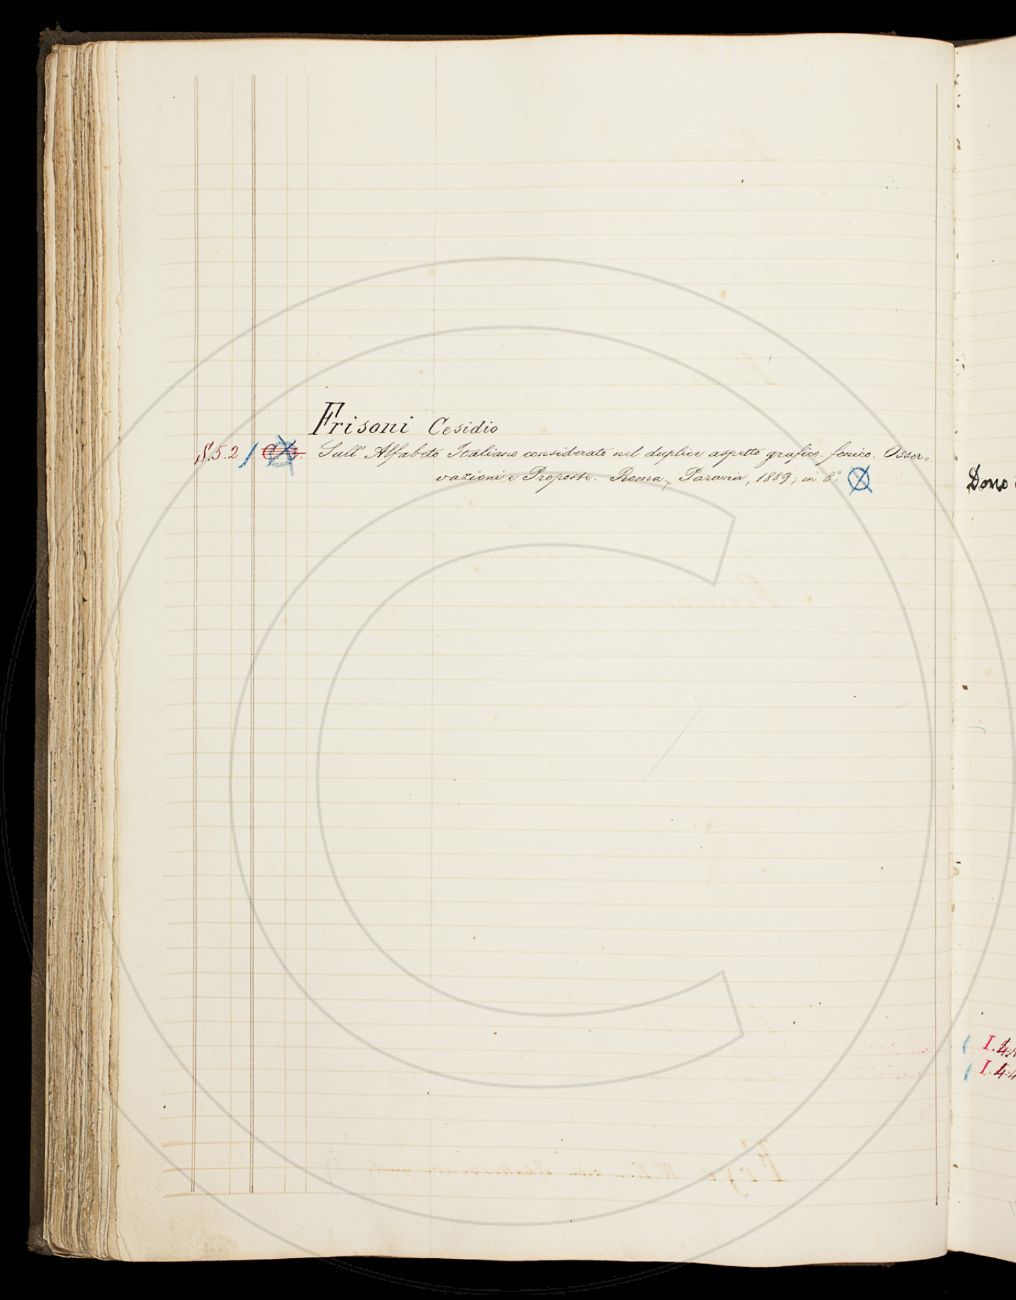 Frisoni Cesidio
S.5.2 Sull' Alfabeto Italiano considerato nel duplice aspetto grafico-fonico. Osser-
vazioni e Proposte. Roma, Paravia, 1889; in 8.°
Dono
I.4
I.44